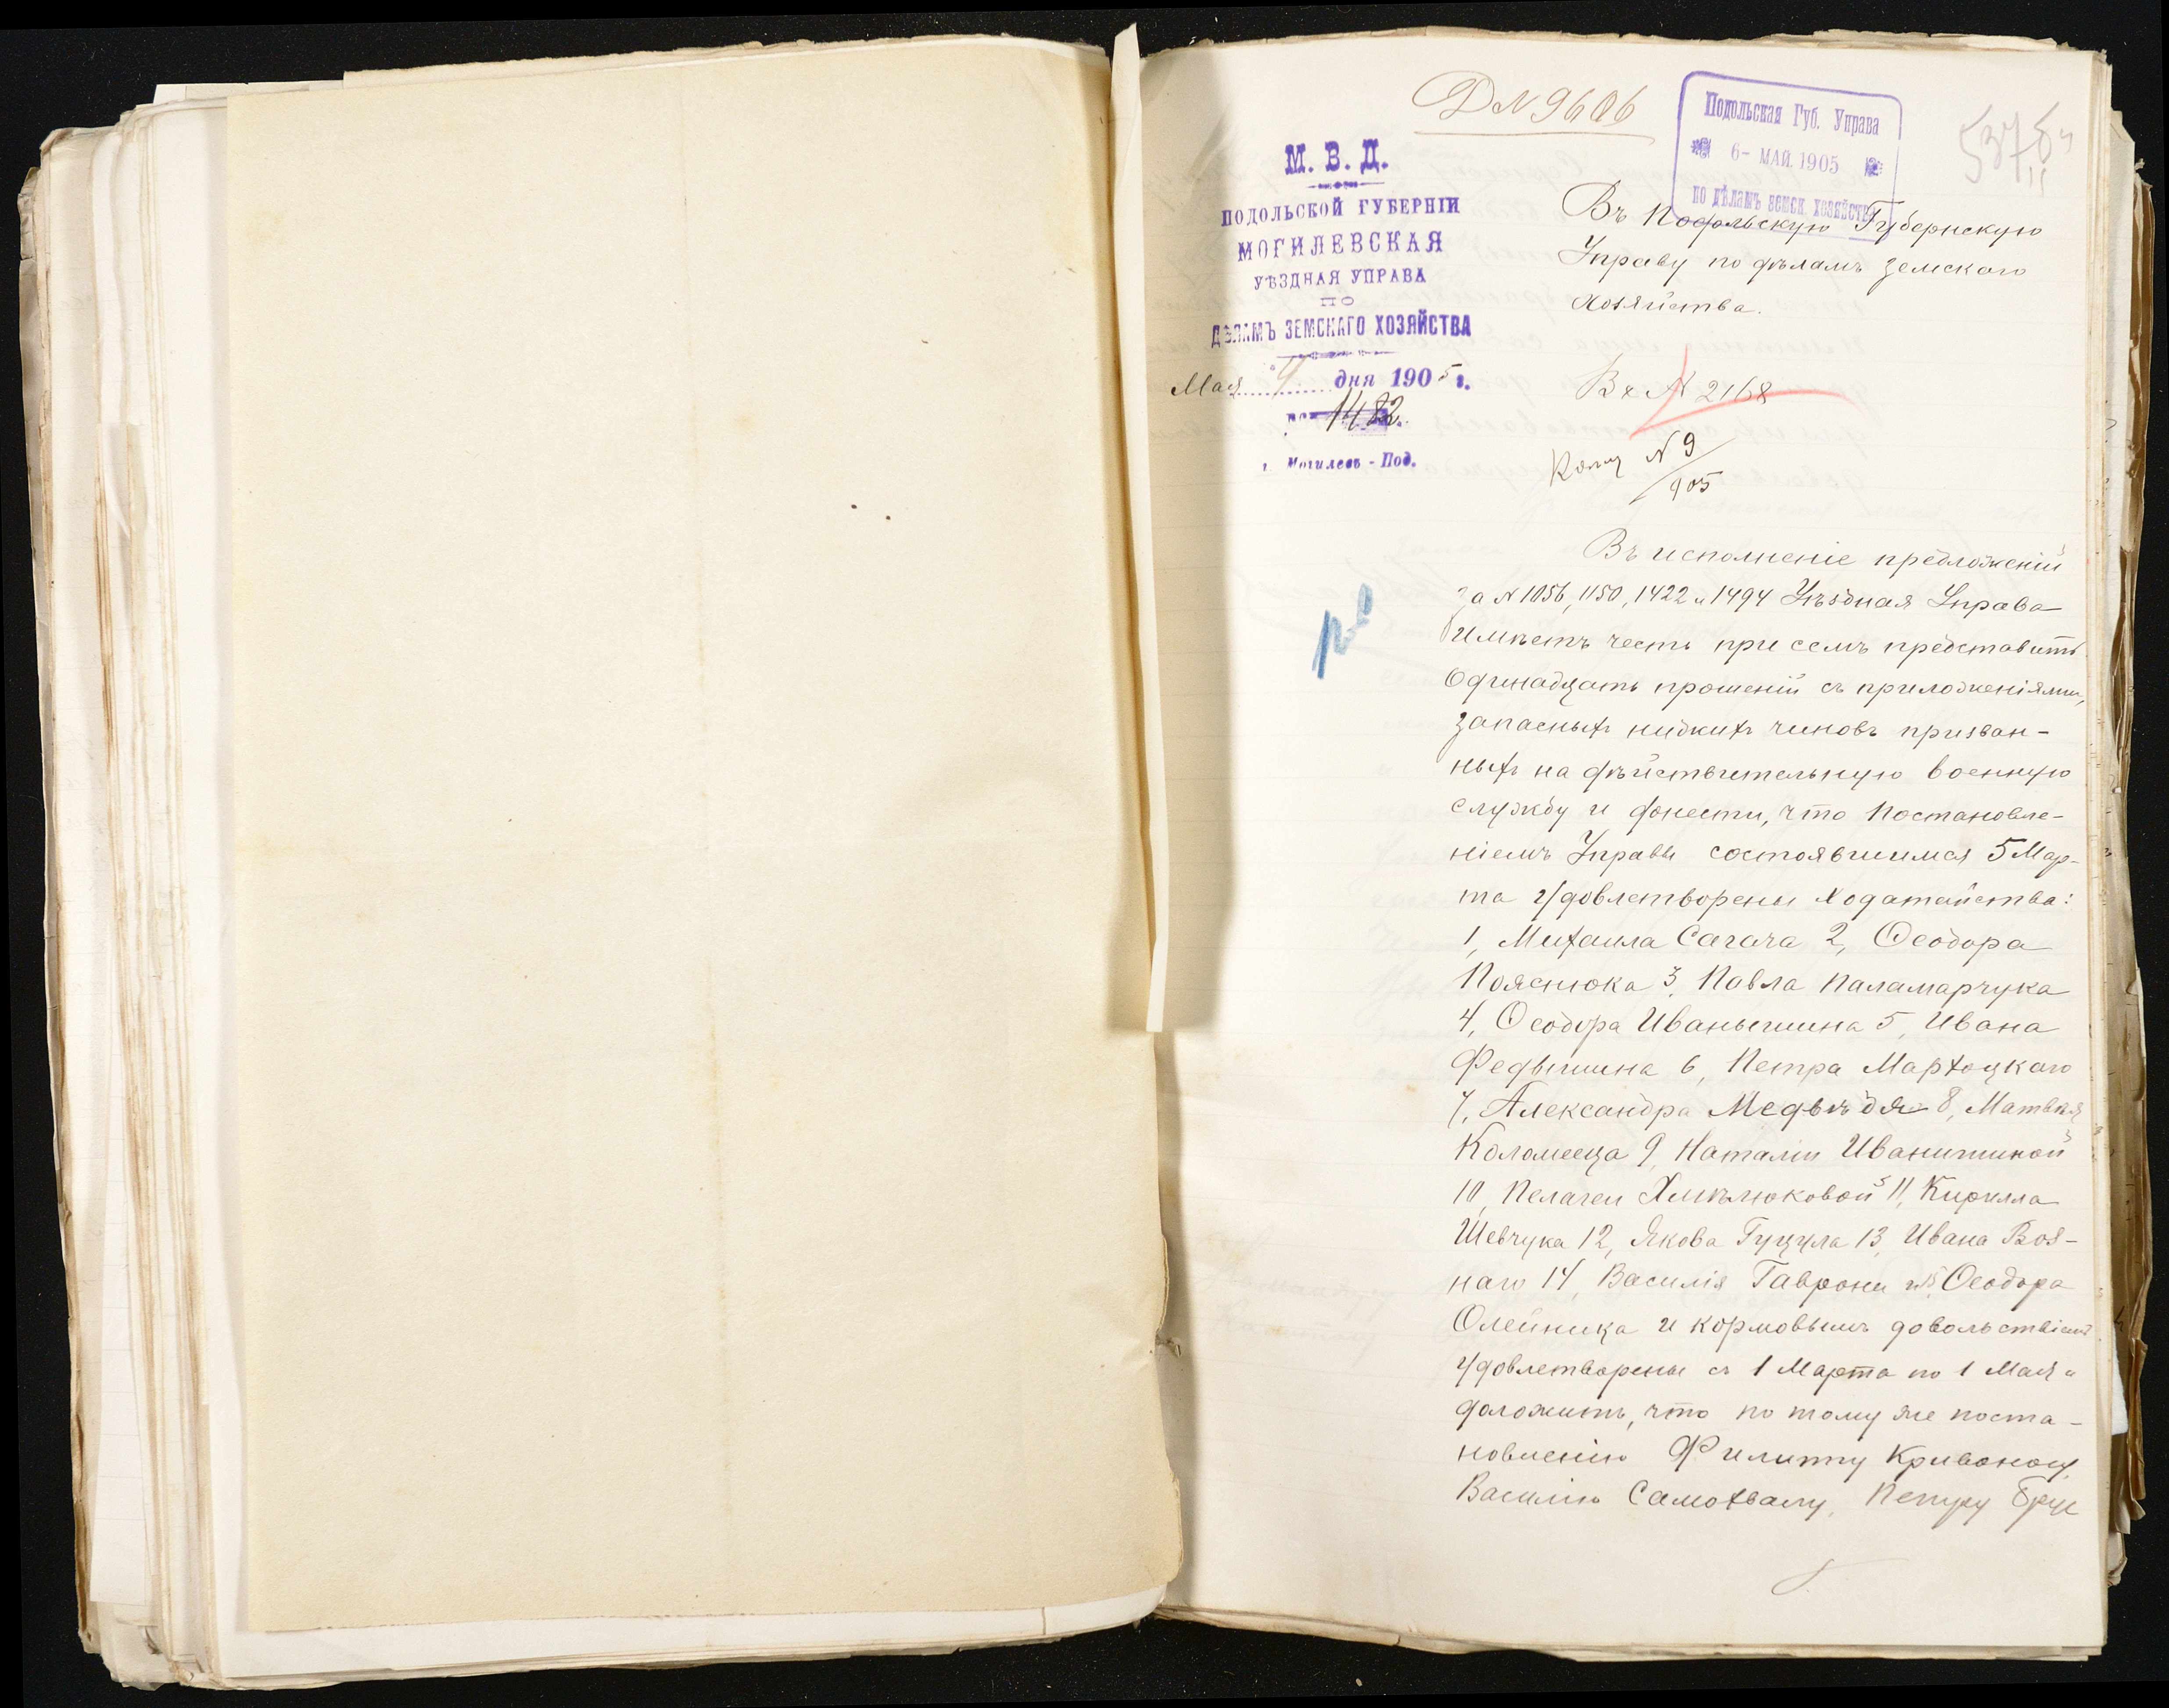 Д N 9606
Подольская Губ. Управа
6- МАЙ. 1905
ПО ДѢЛАМЪ ЗЕМСК. ХОЗЯЙСТВА
М. В. Д.
ПОДОЛЬСКОЙ ГУБЕРНІИ
МОГИЛЕВСКАЯ
УѢЗДНАЯ УПРАВА
ПО
ДѢЛАМЪ ЗЕМСКАГО ХОЗЯЙСТВА
Мая 4 дня 1905 г.
1482
г. Могилевъ - Под.
Въ Подольскую Губернскую
Управу по дѣламъ Земскаго
Хозяйства.
Вх N 2168
N 9
905
Въ исполненіе предложеній
за N 1056, 1150, 1422 и 1494 Уѣздная Управа
имѣетъ честь при семъ представить
одинадцать прошеній съ приложеніями,
запасныхъ нижнихъ чиновъ призван-
ныхъ на дѣйствительную военную
службу и донести, что постановле-
ніемъ Управы состоявшимся 5 Мар-
та удовлетворены ходатайства:
1, Михаила Сагача 2, Ѳеодора
Пояснюка 3, Павла Паламарчука
4, Ѳеодора Иванышина 5, Ивана
Федышина 6, Петра Мархоцкаго
7, Александра Медвѣдя 8, Матвѣя
Коломееца 9, Наталіи Иванишиной
10, Пелагеи Хмѣлюковой 11, Кирилла
Шевчука 12, Якова Гуцула 13, Ивана Воз-
наго 14, Василія Гаврони и 15, Ѳеодора
Олейника и кормовымъ довольствіемъ
удовлетворены съ 1 Марта по 1 Мая и
доложить, что по тому же поста-
новленію Филиппу Кривонос,
Василію Самохвалу, Петру Брус